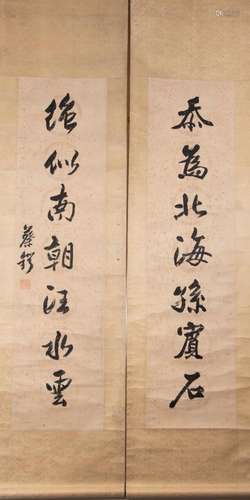 忝為北海孫賓石
絶似南朝汪水雲
蔡鍔